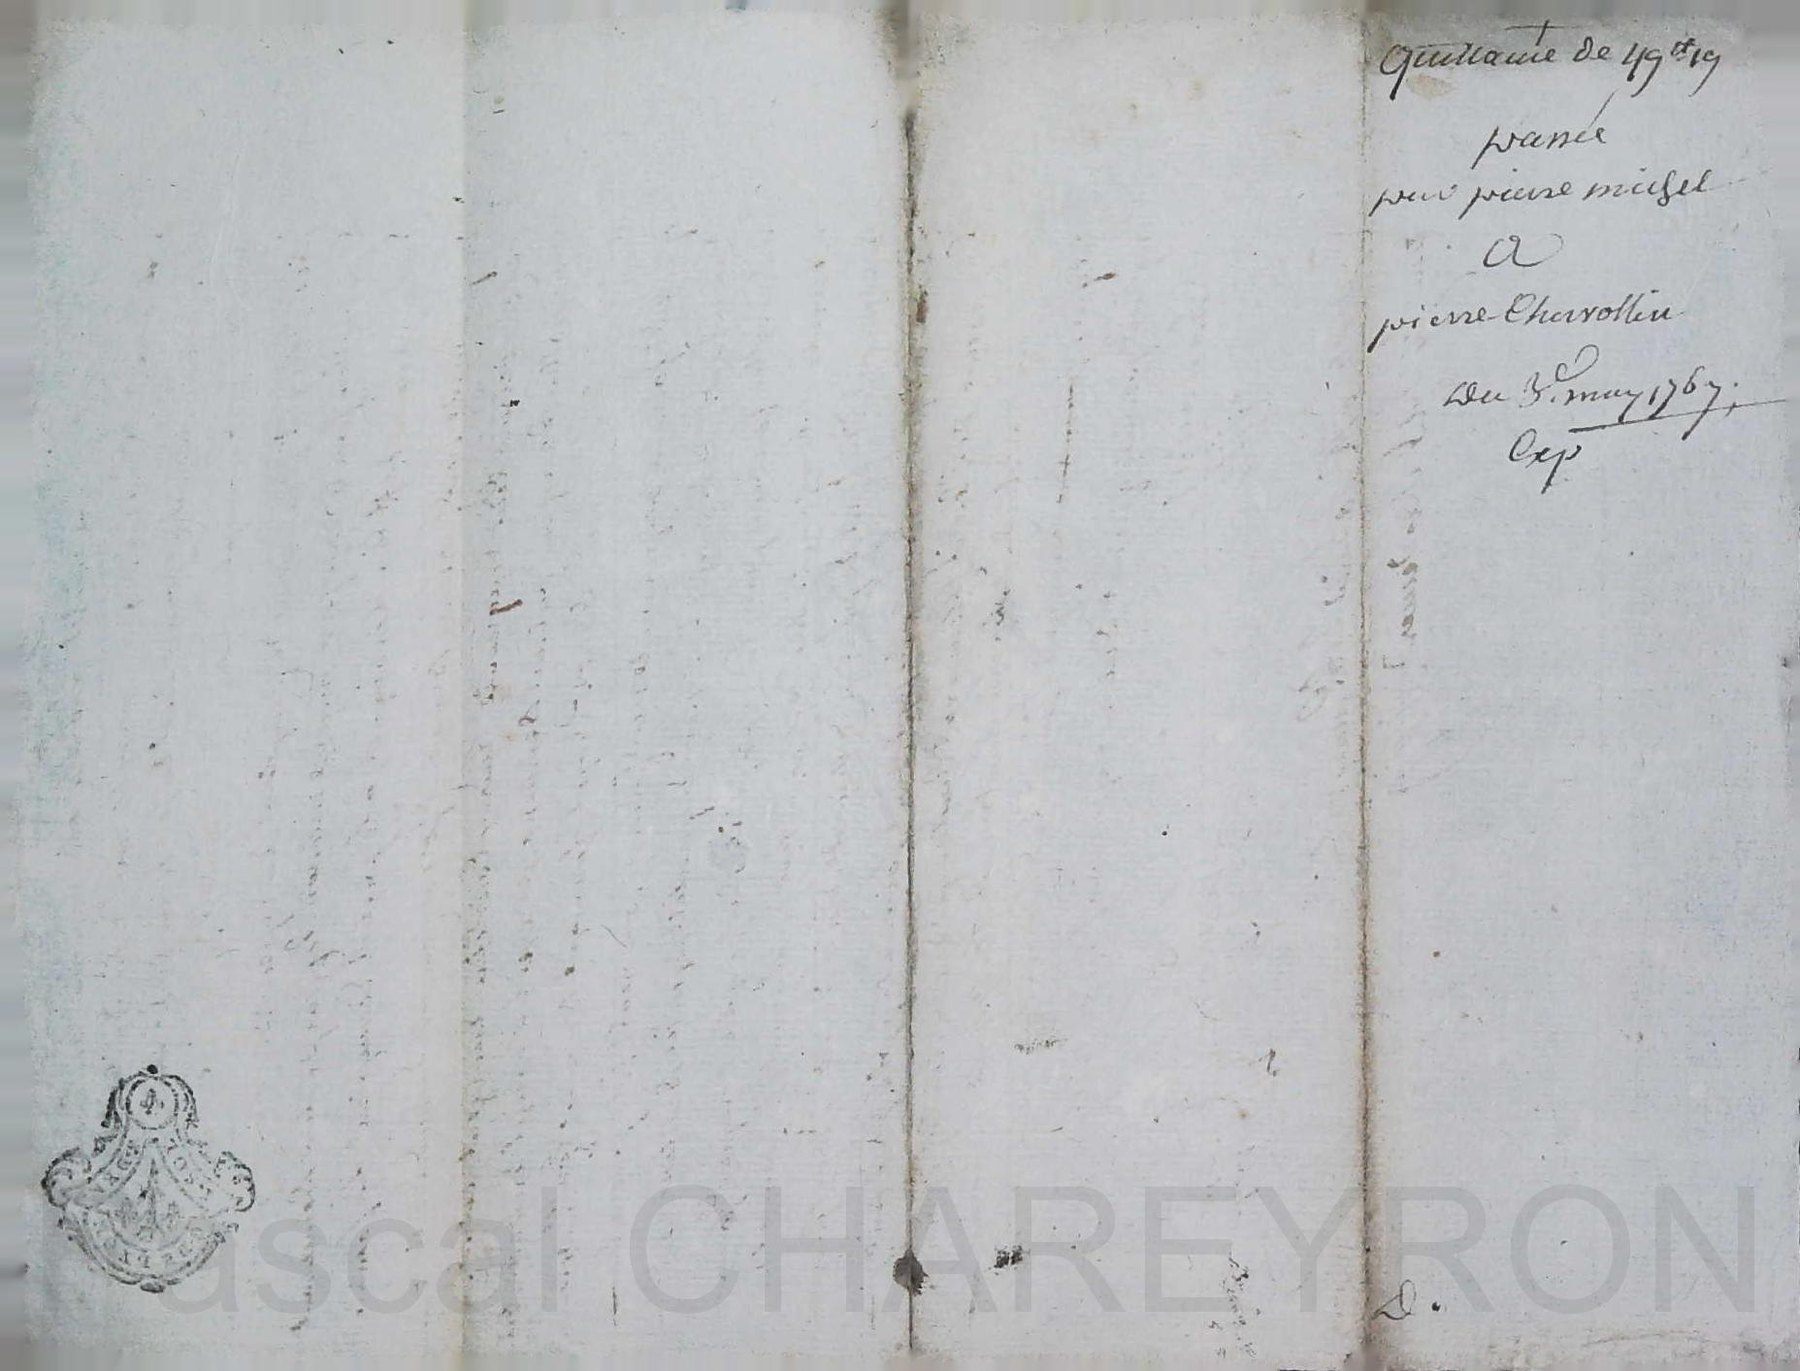 Quittance de 49 lt 19
passée
par pierre michel
A
pierre Charrollin
Du 3e. may 1767.
Exp
D.
Pascal CHAREYRON